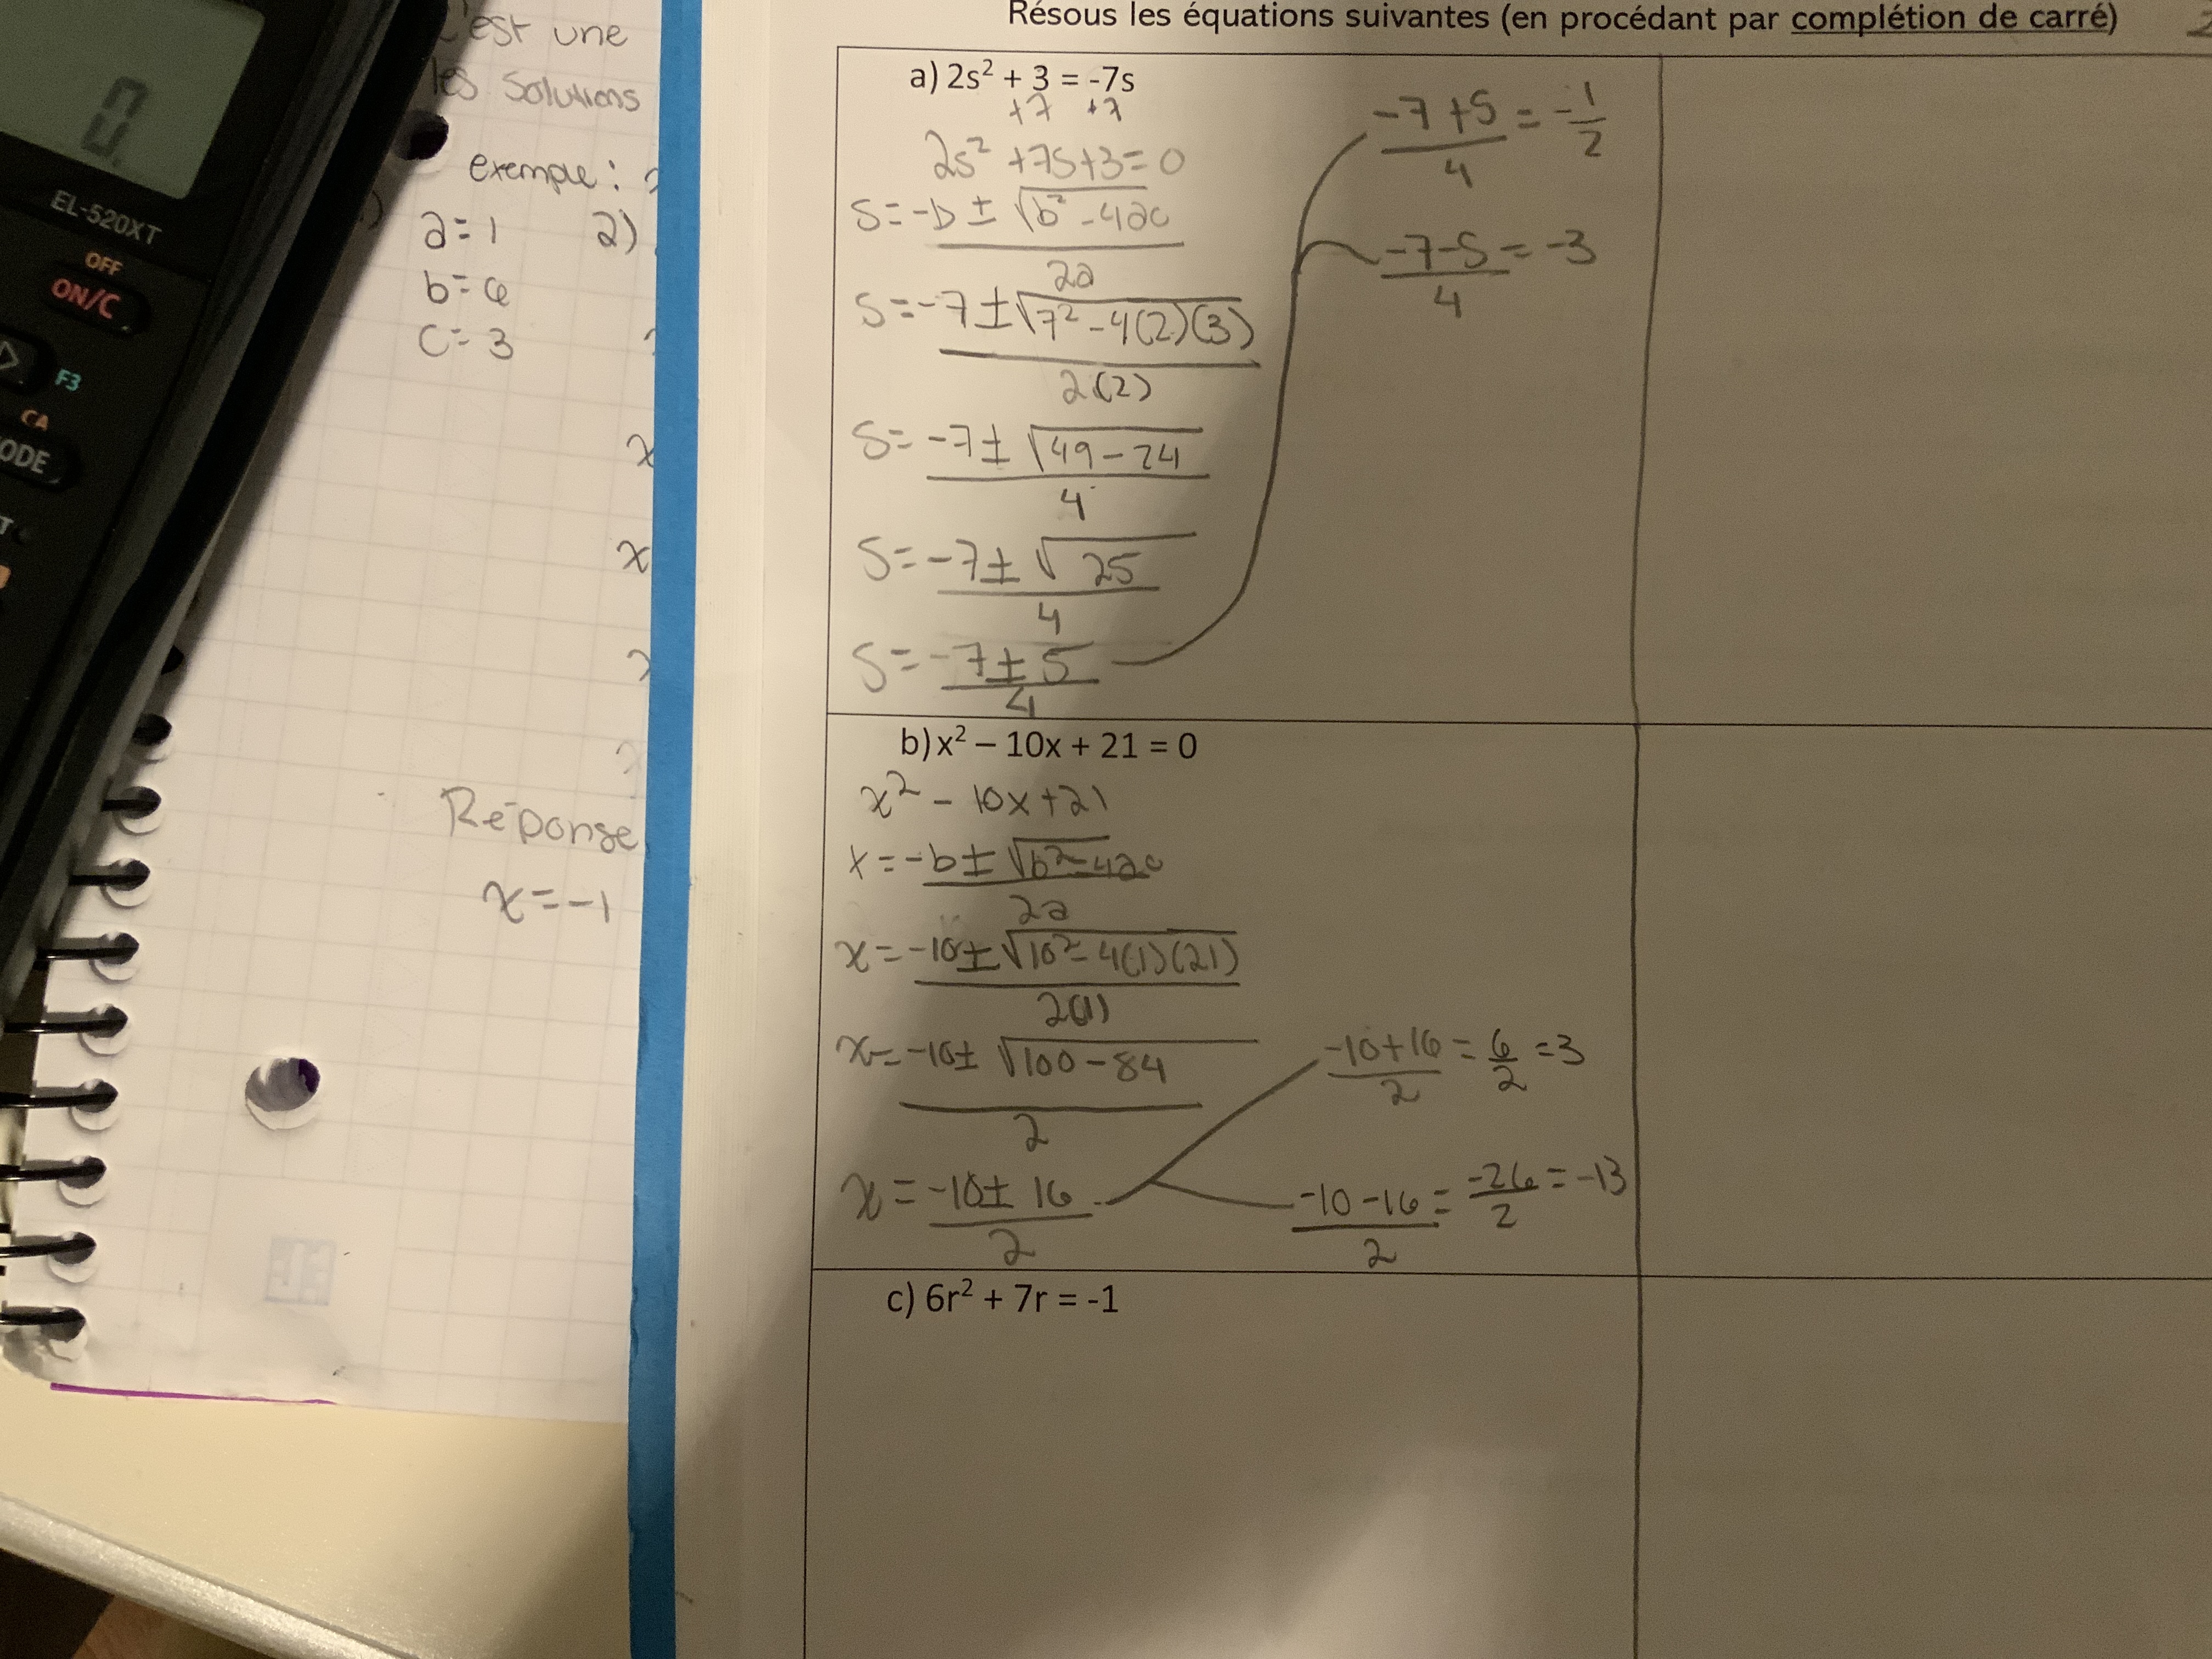 c'est une
les solutions
exemple :
a=1 2)
b=6
c=3
x
x
Réponse
x=-1
0.
EL-520XT
OFF
ON/C
F3
CA
ODE
Résous les équations suivantes (en procédant par complétion de carré)
a) 2s² + 3 = -7s
+7 +7
2s² +7s+3=0
s=-b ± √b² -4ac
2a
s=-7±√7²-4(2)(3)
2(2)
s=-7± √49-24
4
s=-7± √25
4
s=-7±5
4
-7+5 = -1
4 2
-7-5 = -3
4
b) x² – 10x + 21 = 0
x² - 10x+21
x=-b±√b²-4ac
2a
x=-10±√10²-4(1)(21)
2(1)
x=-10± √100-84
2
x=-10± 16
2
-10+16 = 6 =3
2 2
-10-16 = -26 = -13
2 2
c) 6r² + 7r = -1